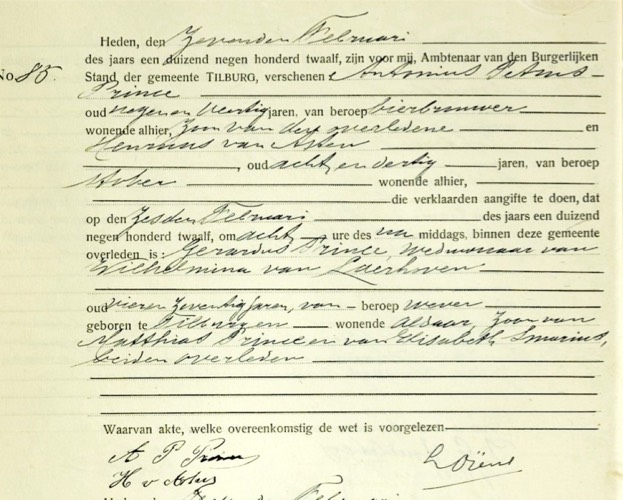 Heden, den Zevenden Februari
des jaars een duizend negen honderd twaalf, zijn voor mij, Ambtenaar van den Burgerlijken
No 85.
Stand, der gemeente TILBURG, verschenen Antonius Petrus
Prince
oud negen en veertig jaren, van beroep bierbrouwer
wonende alhier, zoon van den overledene en
Henricus van Asten
, oud acht en dertig jaren, van beroep
wonende alhier,
die verklaarden aangifte te doen, dat
op den Zesden Februari des jaars een duizend
negen honderd twaalf, om acht ure des na middags, binnen deze gemeente
overleden is: Gerardus Prince, weduwnaar van
Wilhelmina van Laerhoven
oud vier en zeventig jaren, van beroep wever
geboren te Tilburg en wonende aldaar, zoon van
Matthias Prince en van Elisabeth Smarius,
beiden overleden
Waarvan akte, welke overeenkomstig de wet is voorgelezen
A P Prince
H v Asten
Februari